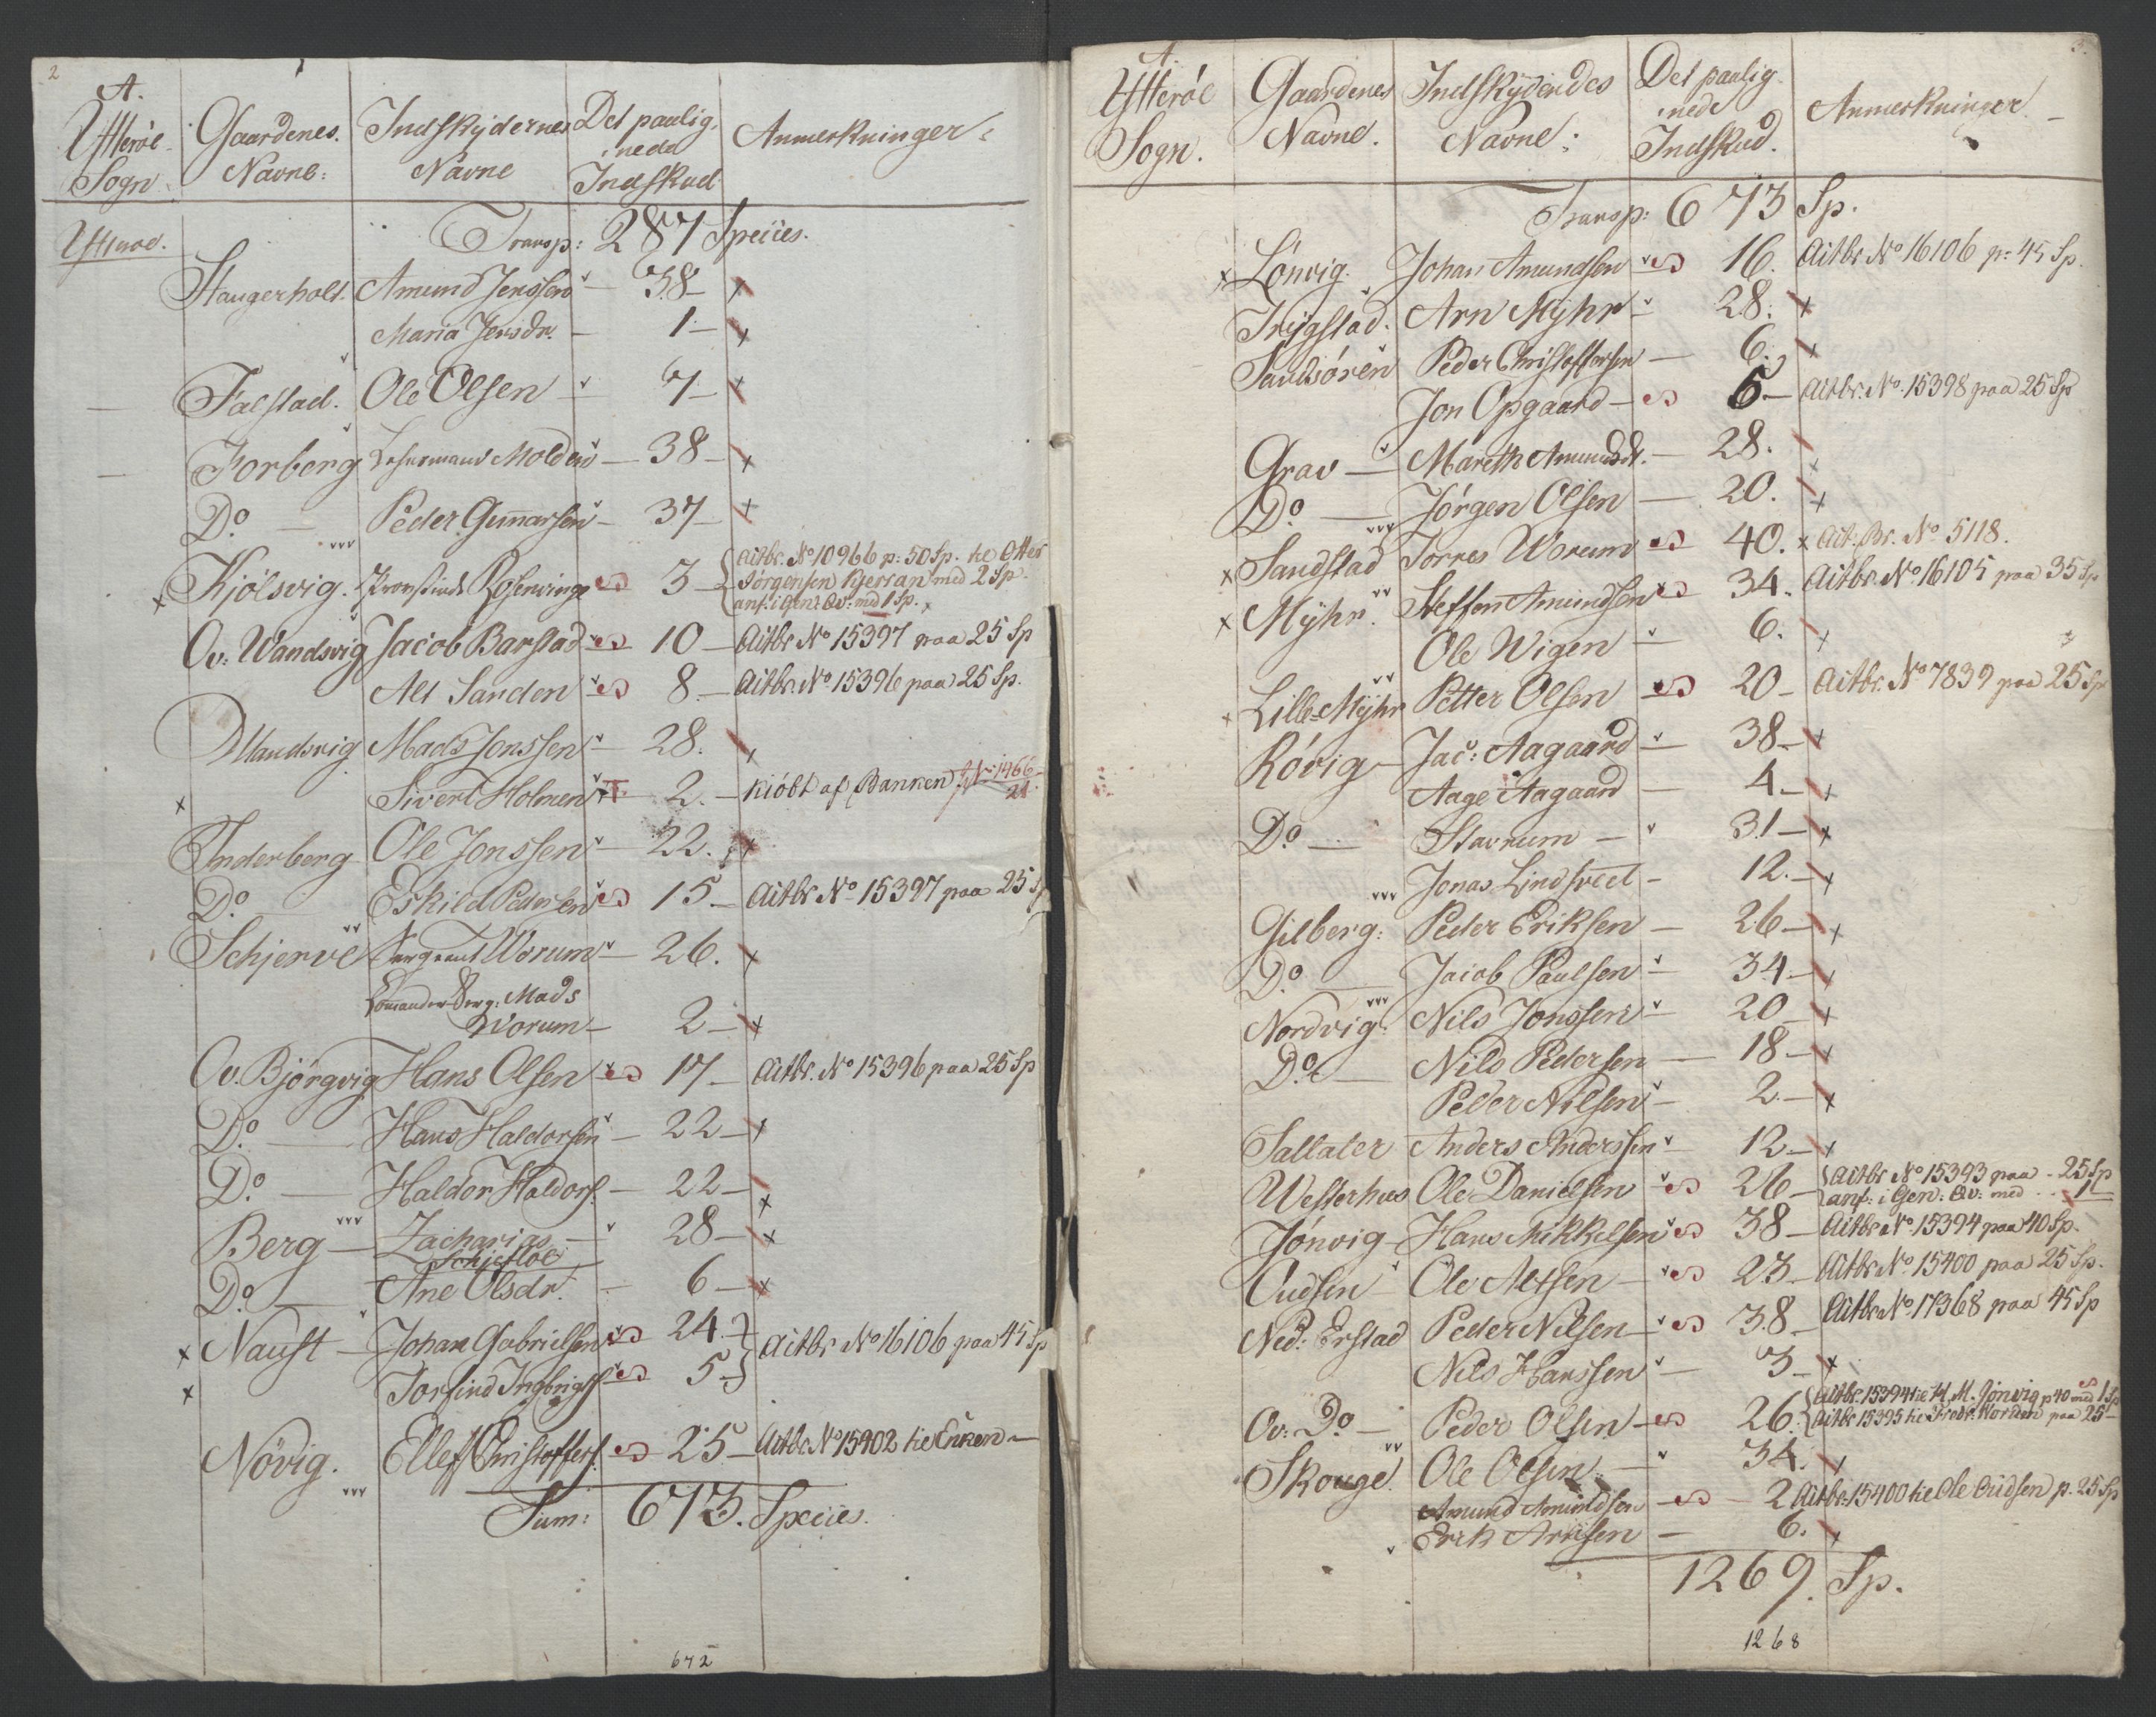 2
A.
Ytterøe Sogn. Gaardenes Navne: Indskydernes Navne Det paalignede Indskud Anmerkninger:
Ytterøe. Transp: 287 Species.
Stangerholt. Amund Jenssen 38 x
Maria Jensdr. 1 x
Falstad. Ole Olsen 7 x
Forberg Lehnsmand Molden 38 x
Do. Peder Gunnarsen 37 x
x Kjölsvig. Rosenvinge 3 Actbr. No 10966 p: 50 Sp. til Otter
Jörgensen Kjerran med 2 Sp.
anf: i Gen: Qv: med 1 Sp. x
Ov: Wandsvig Jacob Barstad 10 Actbr No 15397 paa 25 Sp
Alt Sanden 8 Actbr. No 15396 paa 25 Sp.
Mads Jonssen 28. x
x Sivert Holmen 2. Kiöbt af Banken No 1466
21
Inderberg Ole Jonssen 22. x
Do. Eskild Pedersen 15 Actbr No 15397 paa 25 Sp
Schjerve Sergeant Worum 26. x
Commander Serg: Mads
Worum 2 x
Ov. Björgvig Hans Olsen 17 Actbr. No 15396 paa 25 Sp
Do. Hans Haldorsen 22 x
Do. Haldor Haldors. 22 x
Berg Zacharias 28 x
Schjefloe
Do. Ane Olsdr. 6 x
x Naust Johan Gabrielsen 24. } Actbr No 16106 paa 45 Sp
x Torfind Ingbrigts. 5 }
Növig. Ellef Christoffers. 25 Actbr No 15402 til Enken
Sum: 673. Species.
672
3.
A.
Ytterøe Sogn. Gaardenes Navne. Indskydendes Navne: Det paalignede Indskud. Anmerkninger.
Transp: 673 Sp.
x Lönvig. Johan Amundsen 16. Actbr No 16106 p: 45 Sp.
Trygstad. Arn Myhr 28. x
Sandsören Peder Christoffersen 6. x
Jon Opgaard 5 Actbr. No. 15398 paa 25 Sp
Grav Mareth Amundsdr. 28. x
Do. Jörgen Olsen 20. x
x Sandstad Torres Worum 40. x Act. Br. No 5118.
x Myhr. Steffen Amundsen 34. Actbr No 16105 paa 35 Sp
Ole Wigen 6. x
x Lille-Myhr Petter Olsen 20 Actbr. No 7839 paa 25 Sp
Rövig Jac: Aagaard 38 x
Aage Aagaard 4 x
Do Stavrum 31 x
Jonas Lindsved 12. x
Gilberg: Peder Eriksen 26 x
Do Jacob Paulsen 34 x
Nordvig: Nils Jonssen 20 x
Do. Nils Pedersen 18 x
Peder Nilsen 2 x
Saltater Anders Anderssen 12 x
Westerhus Ole Danielsen 26 { Actbr No 15393 paa 25 Sp
anf: i Gen: Qv: med 1
Jönvig Hans Mikkelsen 38 Actbr No 15394 paa 40 Sp.
Oudsen Ole Altsen 23 Actbr No 15400 paa 25 Sp.
Ned: Erstad Peder Nilsen 38 Actbr No 17368 paa 45 Sp
Nils Hanssen 3 x
Ov: Do Peder Olsen 26. { Actbr. 15394 til H. M. Jönvig p 40 med 1 Sp
Actbr 15395 til Fredr. Worden paa 25
Skouge. Ole Olsen 34. x
Amund Amundsen 2 Actbr. 15400 til Ole Oudsen p. 25 Sp
Erik Arnsen 6. x
1269. Sp.
1268